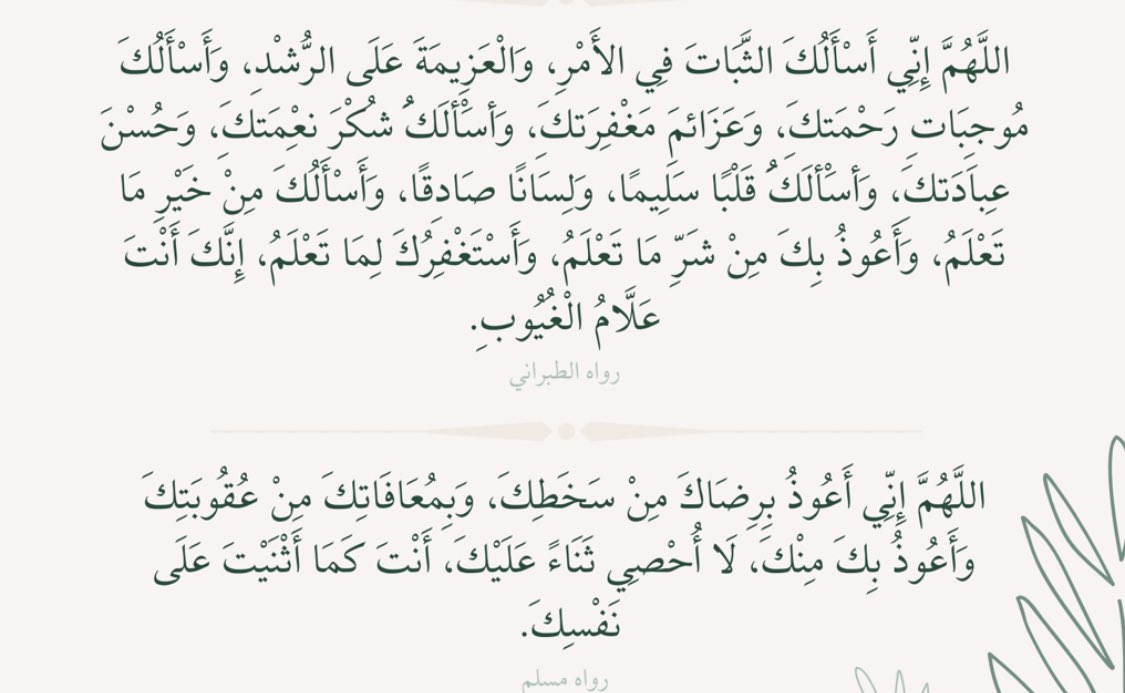 اللَّهُمَّ إِنِّي أَسْأَلُكَ الثَّبَاتَ فِي الأَمْرِ، وَالْعَزِيمَةَ عَلَى الرُّشْدِ، وَأَسْأَلُكَ
مُوجِبَاتِ رَحْمَتِكَ، وَعَزَائِمَ مَغْفِرَتِكَ، وَأَسْأَلُكَ شُكْرَ نِعْمَتِكَ، وَحُسْنَ
عِبَادَتِكَ، وَأَسْأَلُكَ قَلْبًا سَلِيمًا، وَلِسَانًا صَادِقًا، وَأَسْأَلُكَ مِنْ خَيْرِ مَا
تَعْلَمُ، وَأَعُوذُ بِكَ مِنْ شَرِّ مَا تَعْلَمُ، وَأَسْتَغْفِرُكَ لِمَا تَعْلَمُ، إِنَّكَ أَنْتَ
عَلَّامُ الْغُيُوبِ.
رواه الطبراني
اللَّهُمَّ إِنِّي أَعُوذُ بِرِضَاكَ مِنْ سَخَطِكَ، وَبِمُعَافَاتِكَ مِنْ عُقُوبَتِكَ
وَأَعُوذُ بِكَ مِنْكَ، لَا أُحْصِي ثَنَاءً عَلَيْكَ، أَنْتَ كَمَا أَثْنَيْتَ عَلَى
نَفْسِكَ.
رواه مسلم